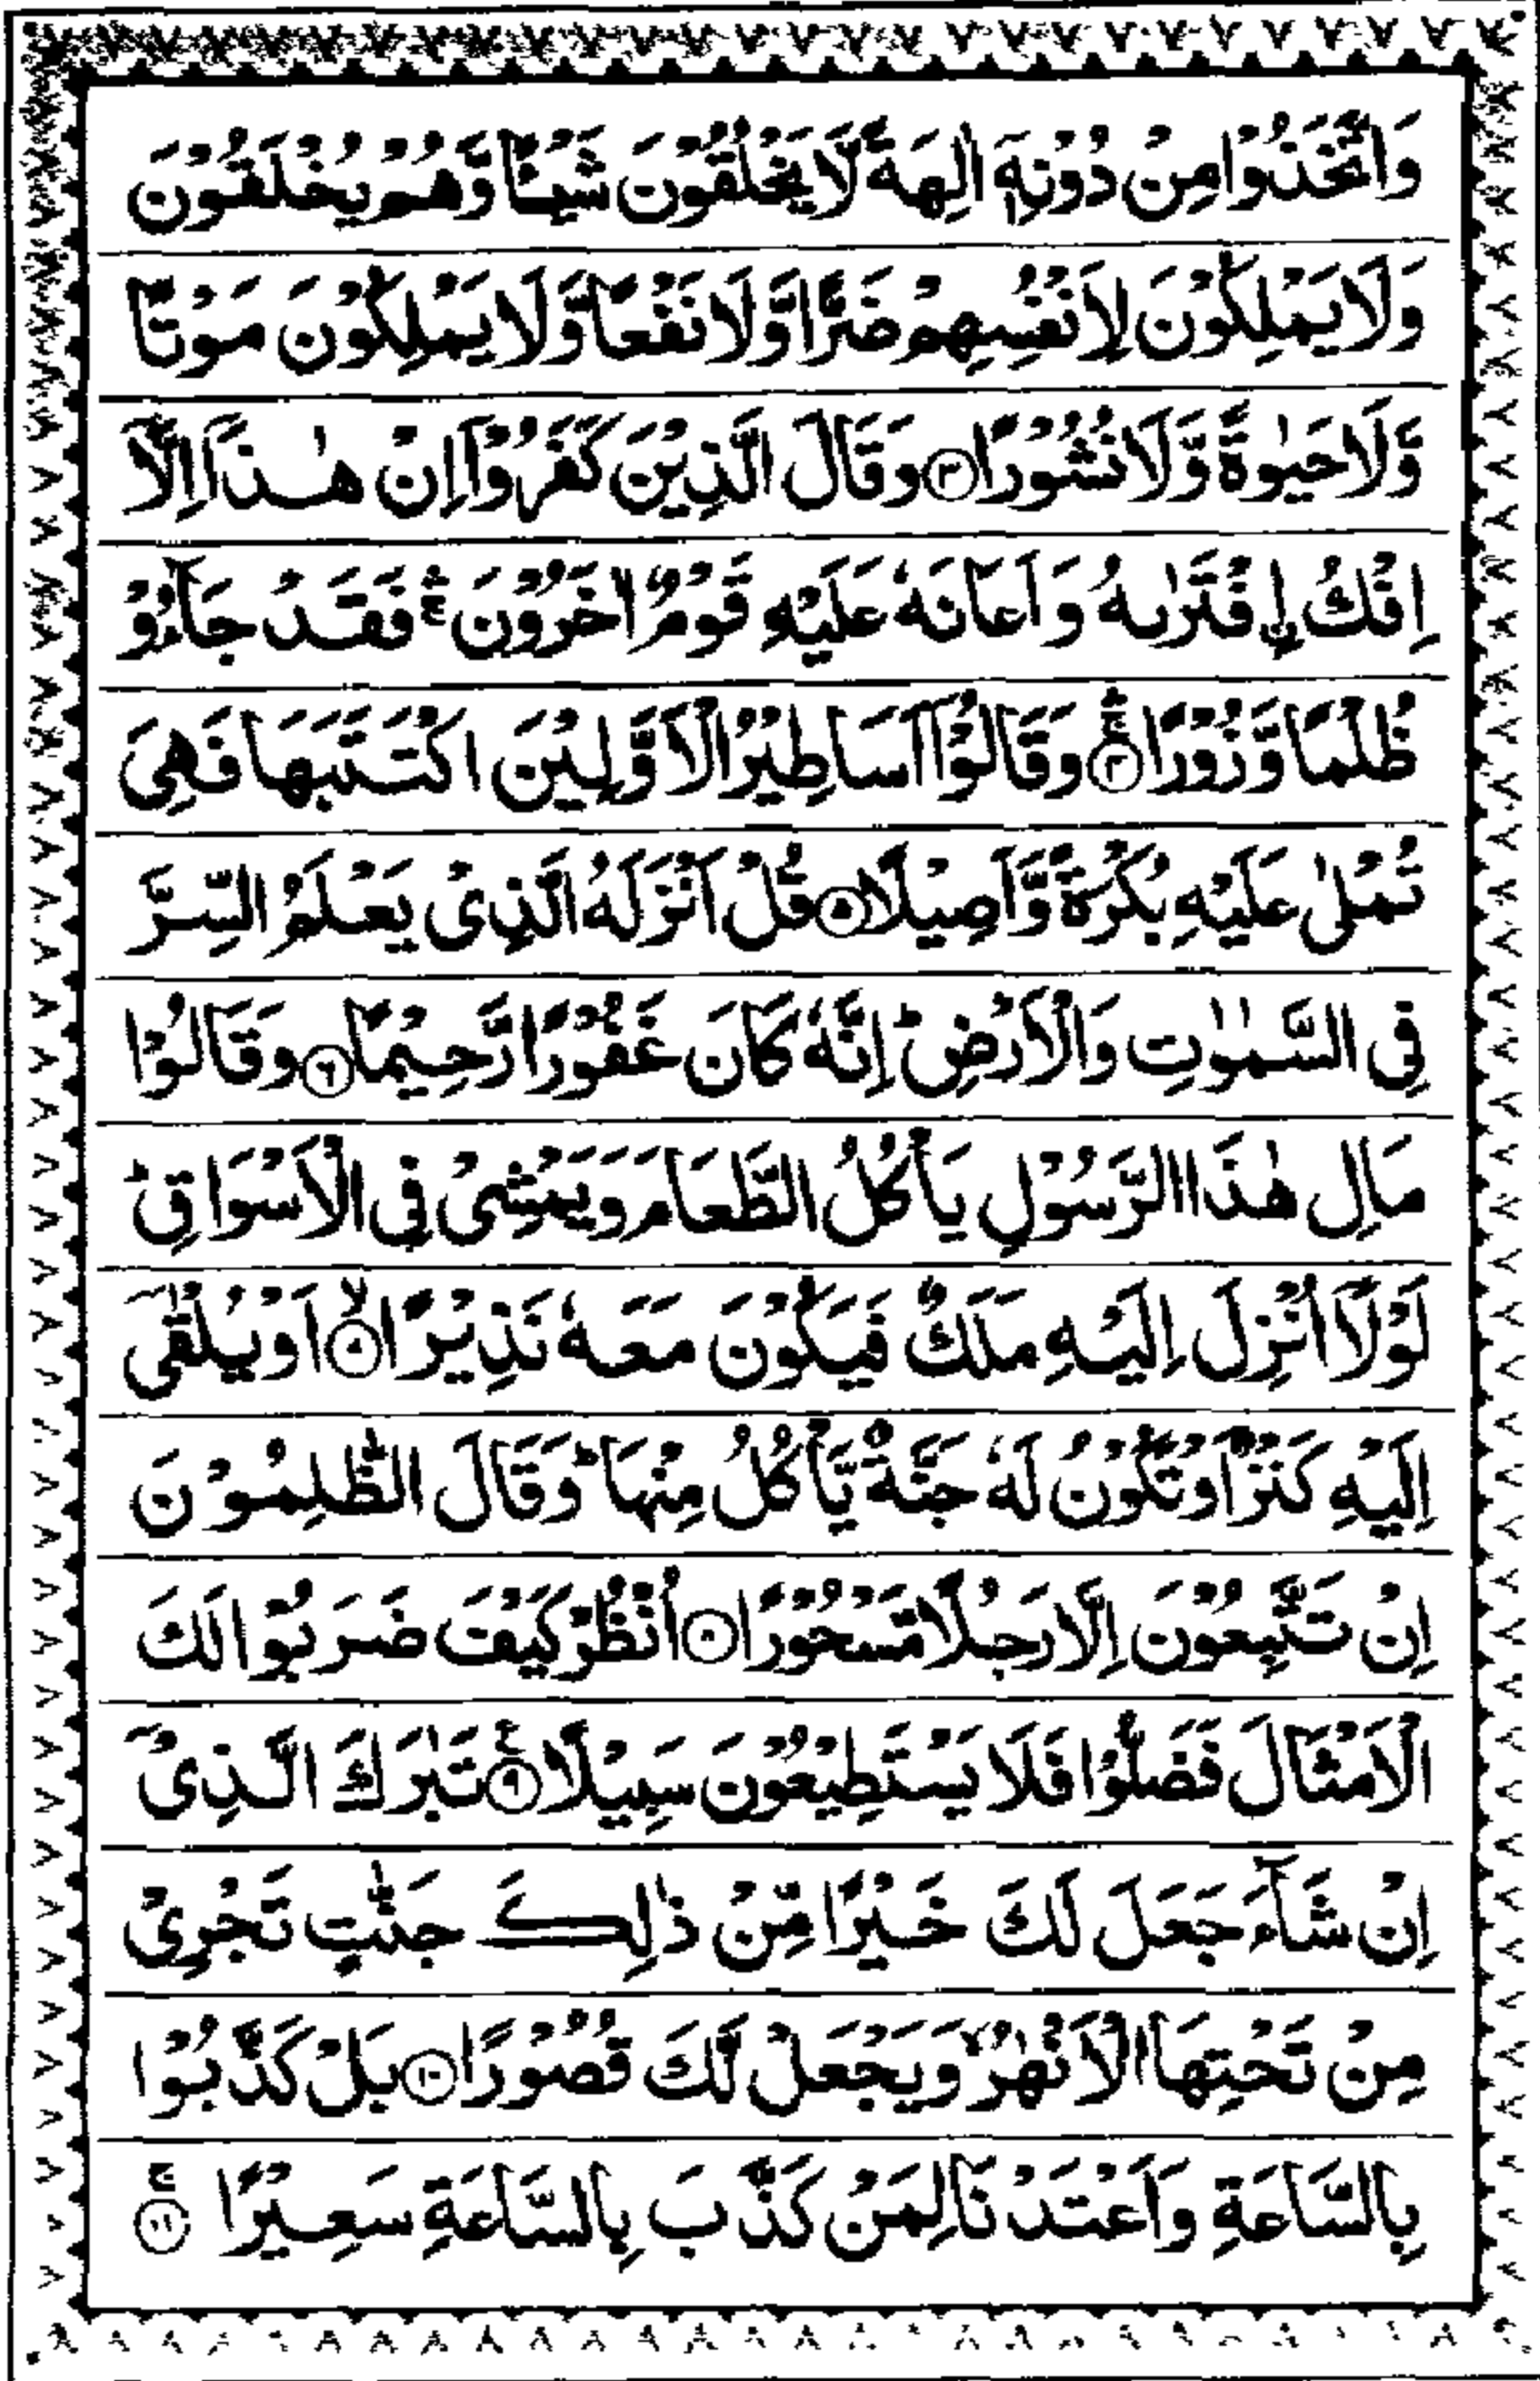 وَاتَّخَذُوْا مِنْ دُوْنِهٖۤ اٰلِهَةً لَّا يَخْلُقُوْنَ شَيْـًٔا وَّهُمْ يُخْلَقُوْنَ
وَلَا يَمْلِكُوْنَ لِاَنْفُسِهِمْ ضَرًّا وَّلَا نَفْعًا وَّلَا يَمْلِكُوْنَ مَوْتًا
وَّلَا حَيٰوةً وَّلَا نُشُوْرًا ۝۳ وَقَالَ الَّذِيْنَ كَفَرُوْۤا اِنْ هٰذَاۤ اِلَّاۤ
اِفْكُ ِ۟افْتَرٰىهُ وَاَعَانَهٗ عَلَيْهِ قَوْمٌ اٰخَرُوْنَ ۛۚ فَقَدْ جَآءُوْ
ظُلْمًا وَّزُوْرًا ۛۚ۝۴ وَقَالُوْۤا اَسَاطِيْرُ الْاَوَّلِيْنَ اكْتَتَبَهَا فَهِىَ
تُمْلٰى عَلَيْهِ بُكْرَةً وَّاَصِيْلًا ۝۵ قُلْ اَنْزَلَهُ الَّذِىْ يَعْلَمُ السِّرَّ
فِى السَّمٰوٰتِ وَالْاَرْضِ ؕ اِنَّهٗ كَانَ غَفُوْرًا رَّحِيْمًا ۝۶ وَقَالُوْا
مَالِ هٰذَا الرَّسُوْلِ يَاْكُلُ الطَّعَامَ وَيَمْشِىْ فِى الْاَسْوَاقِ ؕ
لَوْلَاۤ اُنْزِلَ اِلَيْهِ مَلَكٌ فَيَكُوْنَ مَعَهٗ نَذِيْرًا ۙ۝۷ اَوْ يُلْقٰۤى
اِلَيْهِ كَنْزٌ اَوْ تَكُوْنُ لَهٗ جَنَّةٌ يَّاْكُلُ مِنْهَا ؕ وَقَالَ الظّٰلِمُوْنَ
اِنْ تَتَّبِعُوْنَ اِلَّا رَجُلًا مَّسْحُوْرًا ۝۸ اُنْظُرْ كَيْفَ ضَرَبُوْا لَكَ
الْاَمْثَالَ فَضَلُّوْا فَلَا يَسْتَطِيْعُوْنَ سَبِيْلًا ۠۝۹ تَبٰرَكَ الَّذِىْۤ
اِنْ شَآءَ جَعَلَ لَكَ خَيْرًا مِّنْ ذٰلِكَ جَنّٰتٍ تَجْرِىْ
مِنْ تَحْتِهَا الْاَنْهٰرُ ۙ وَيَجْعَلْ لَّكَ قُصُوْرًا ۝۱۰ بَلْ كَذَّبُوْا
بِالسَّاعَةِ وَاَعْتَدْنَا لِمَنْ كَذَّبَ بِالسَّاعَةِ سَعِيْرًا ۚ۝۱۱